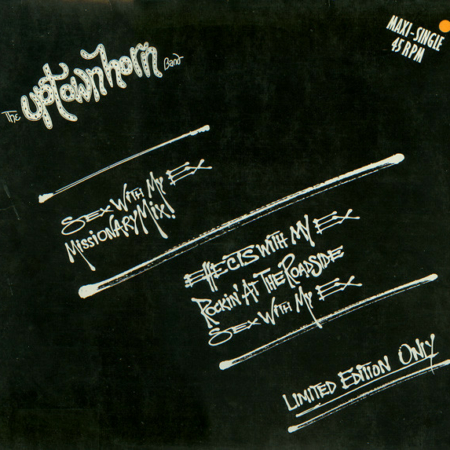 The uptown horn Band
MAXI-SINGLE
45 RPM
SEX WITH MY EX
MISSIONARY MIX!
EFFECTS WITH MY EX
ROCKIN' AT THE ROADSIDE
SEX WITH MY EX
LIMITED EDITION ONLY